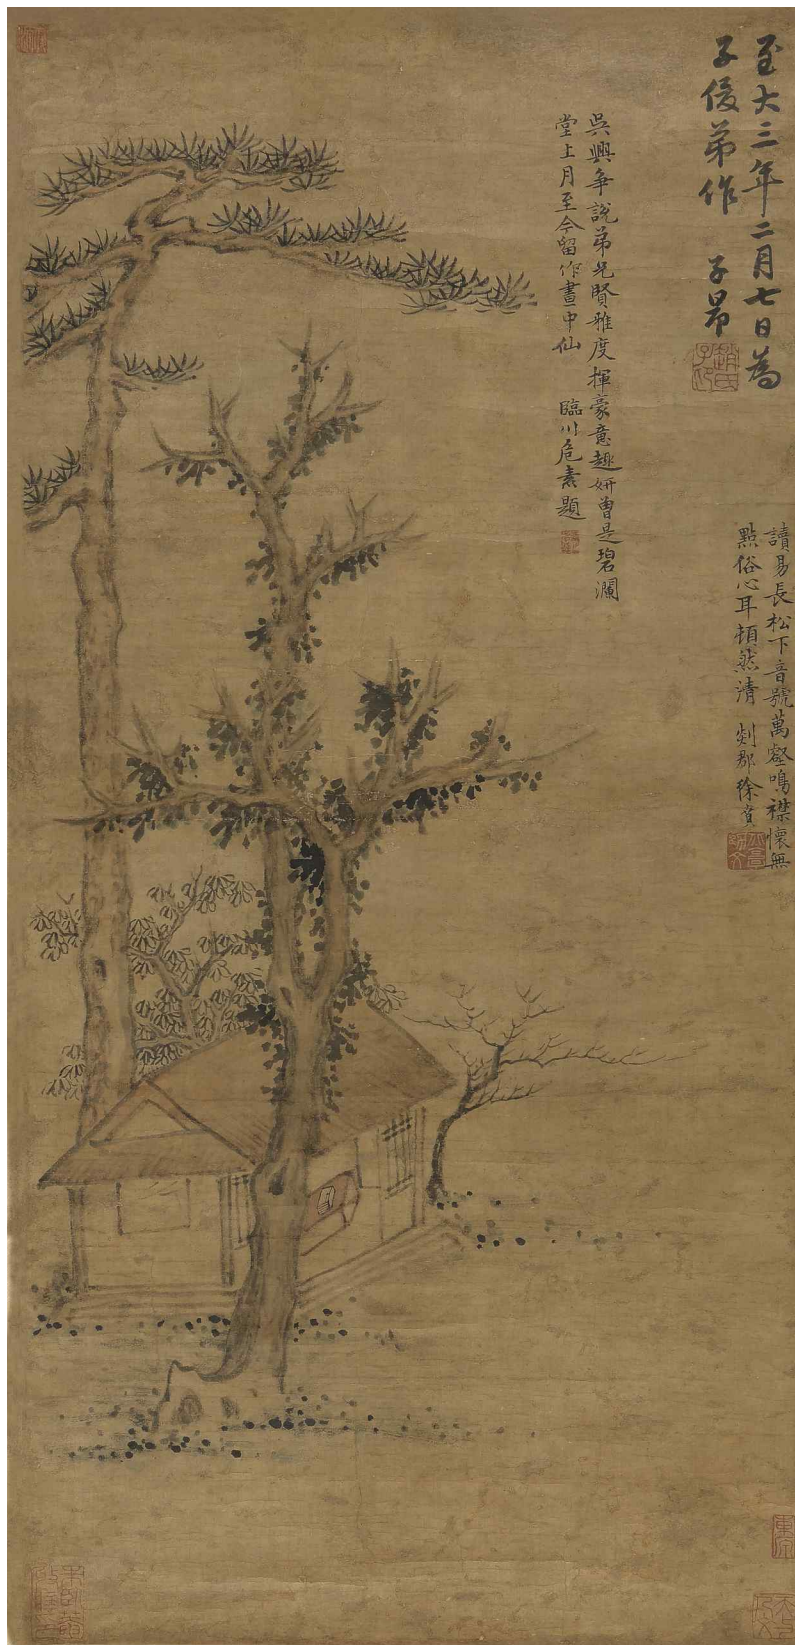 至大三年二月七日為
子俊弟作 子昂
趙氏子昂
吳興爭說弟兄賢雅度揮豪意趣妍曾是碧瀾
堂上月至今留作畫中仙 臨川危素題
讀易長松下音號萬壑鳴襟懷無
點俗心耳頓然清 剡郡徐賁